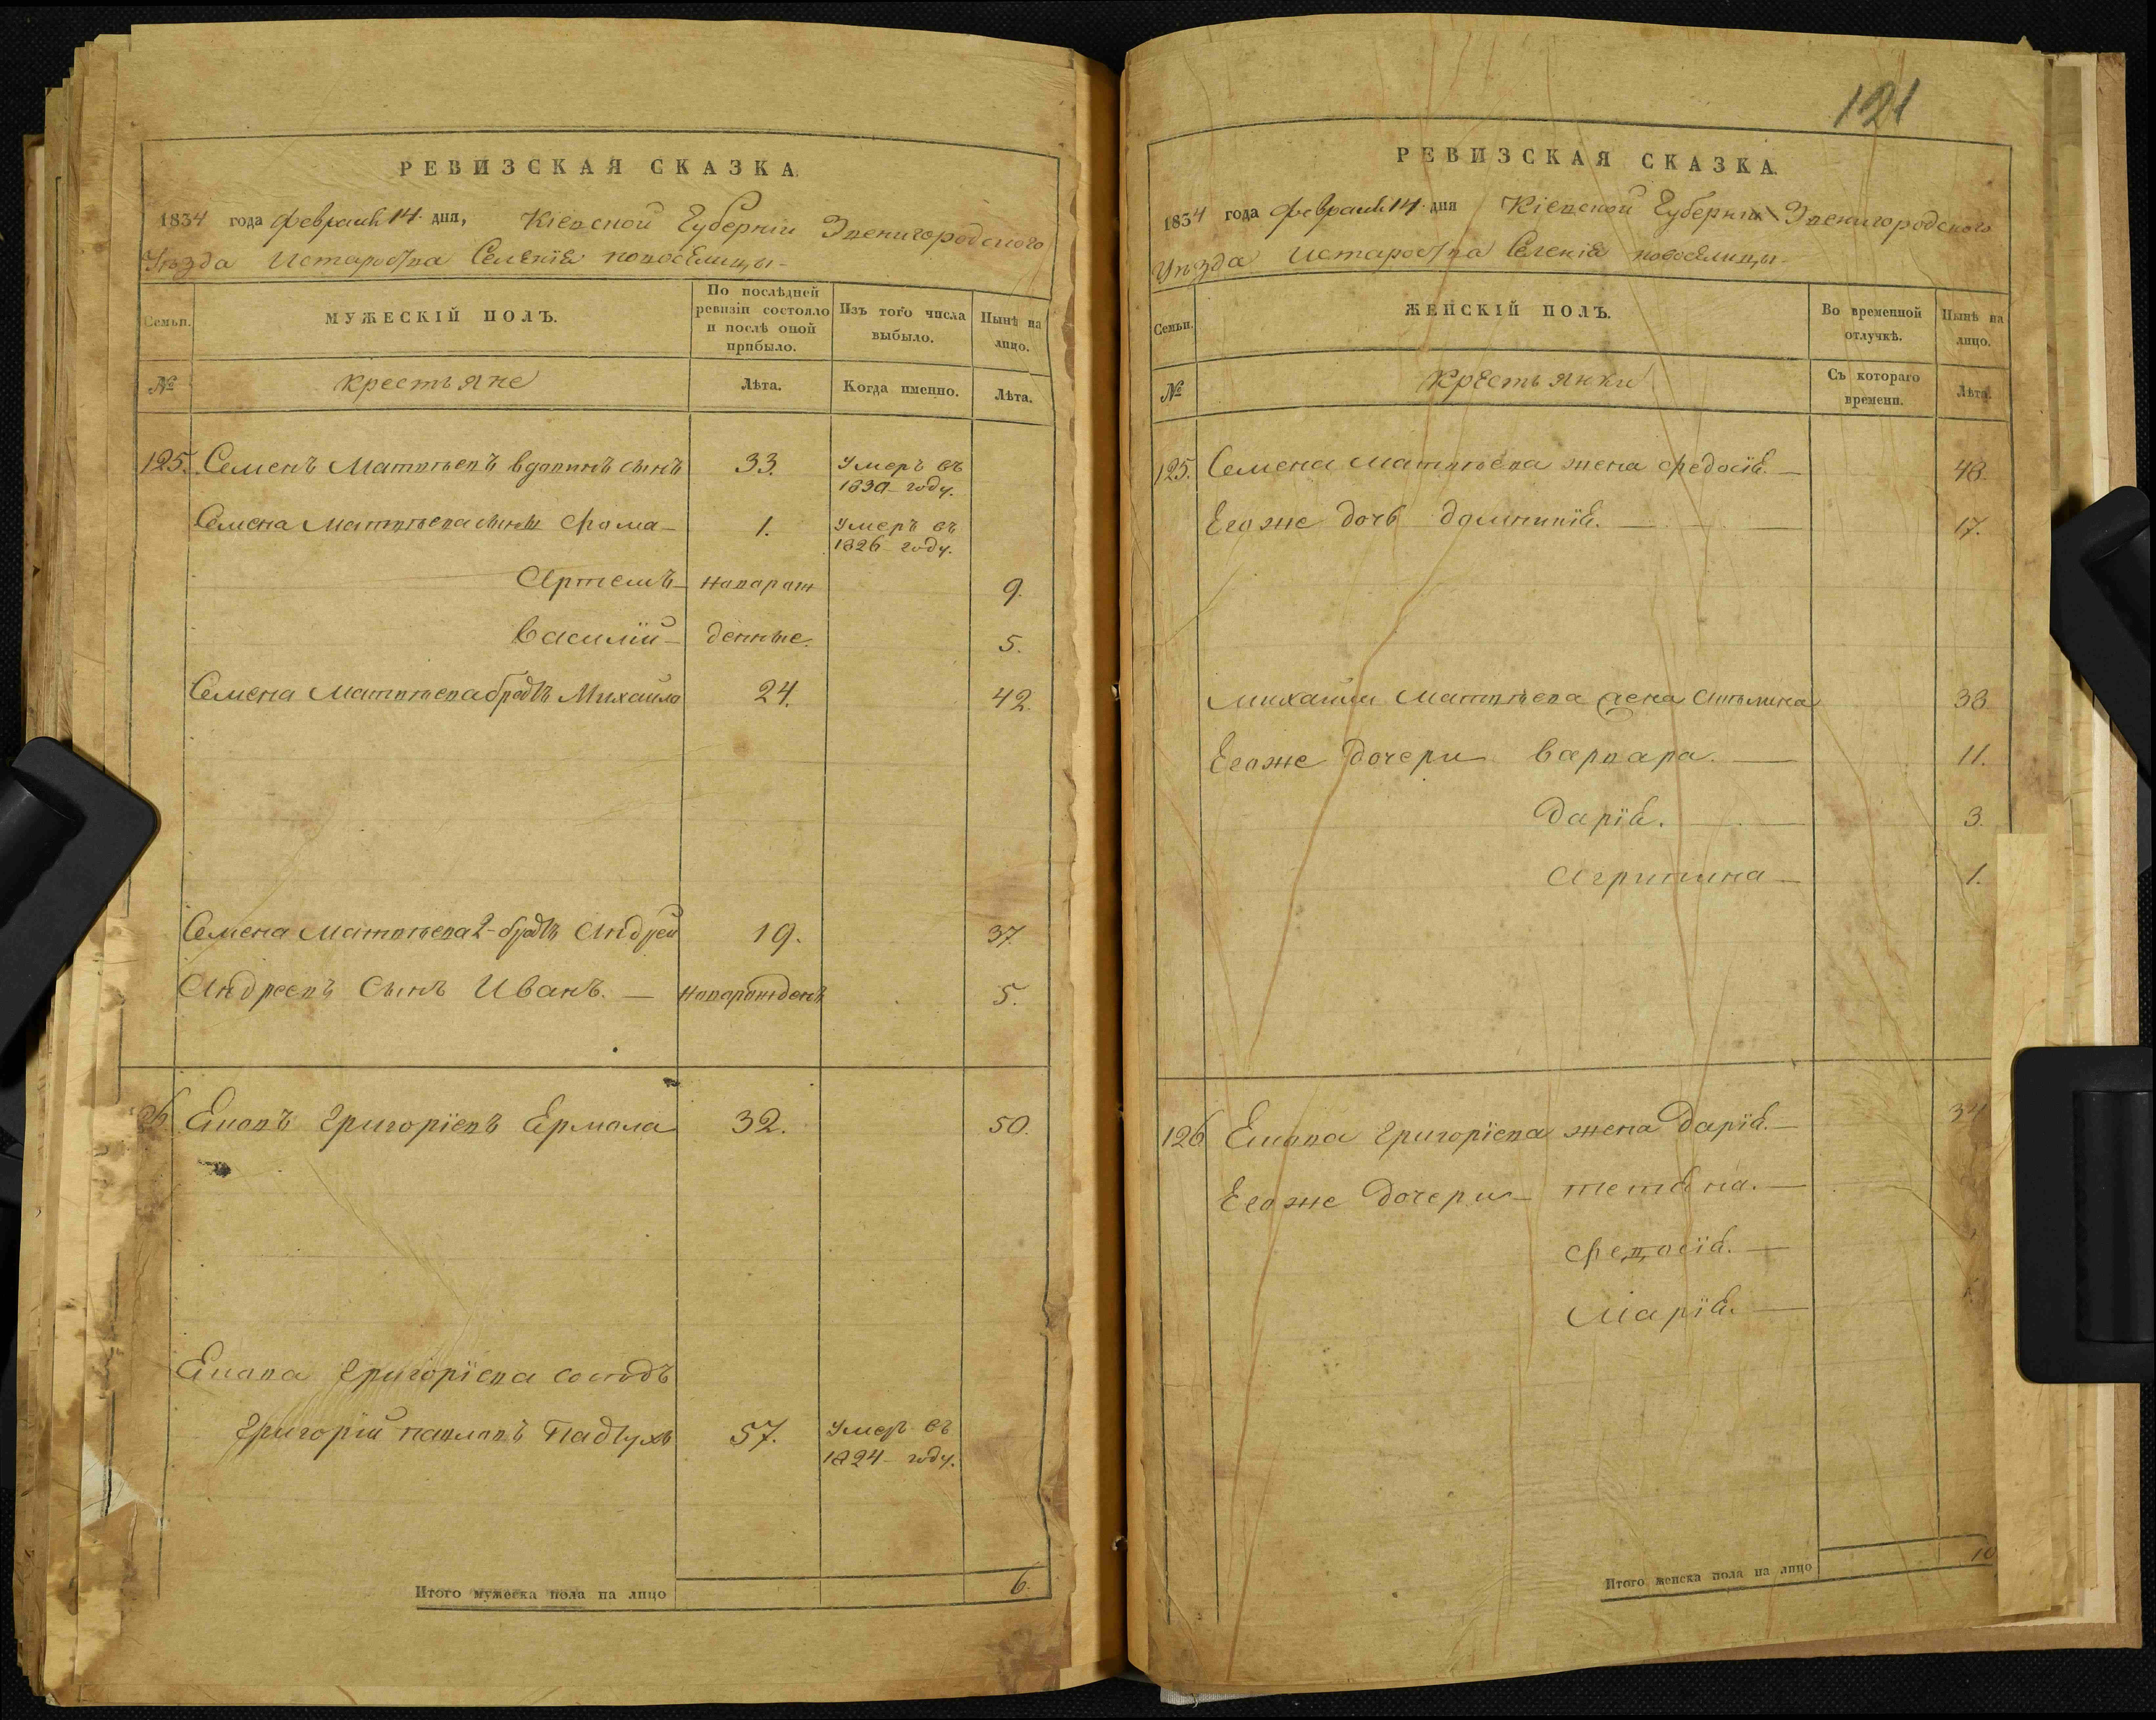 РЕВИЗСКАЯ СКАЗКА.
1834 года февраля 14 дня, Кіевской Губерніи Звенигородского
Уѣзда Истароства Селенія новоселицы
Семьи.
МУЖЕСКІЙ ПОЛЪ.
По послѣдней ревизіи состояло и послѣ оной прибыло.
Изъ того числа выбыло.
Нынѣ на лицо.
№
крестьяне
Лѣта.
Когда именно.
Лѣта.
125. Семенъ Матвѣевъ вдовинъ сынъ 33. Умеръ въ
1830 году.
Семена Матвѣева сыны Фома 1. Умеръ въ
1826 году.
Артемъ новорож 9.
василій денные. 5.
Семена Матвѣева братъ Михайло 24. 42.
Семена Матвѣева 2-братъ Андрей 19. 37.
Андреевъ Сынъ Иванъ. новорожденъ 5.
26. Григоріевъ Ермола 32. 50.
Григоріева
Григорій павловъ Пастухъ 57. Умеръ въ
1824 году.
Итого мужеска пола на лицо 6.
121
РЕВИЗСКАЯ СКАЗКА.
1834 года февраля 14 дня Кіевской Губерніи Звенигородского
Уѣзда Истароства Селенія новоселицы
Семьи.
ЖЕНСКІЙ ПОЛЪ.
Во временной отлучкѣ.
Нынѣ на лицо.
№
крестьянки
Съ котораго времени.
Лѣта.
125. Семена Матвѣева жена федосія. 48.
Егоже дочь домникія. 17.
михайли Матвѣева жена 38
Егоже дочери варвара. 11.
Дарія. 3.
Агрипина 1.
126 Григоріева жена Дарія. 34
Егоже дочери тетяна.
федосія.
Марія.
Итого женска пола на лицо 10